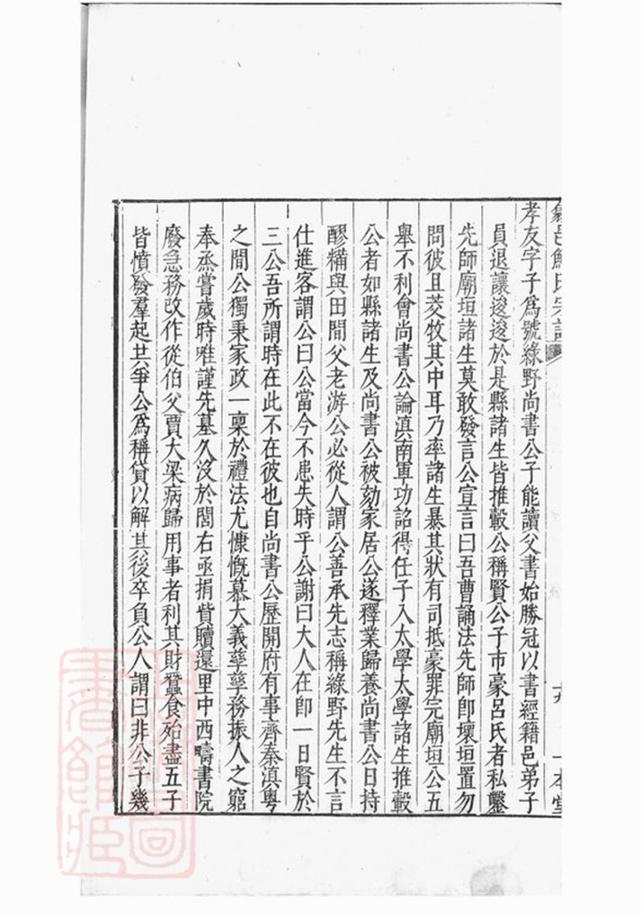 孝友字子爲號綠野尚書公子能讀父書始勝冠以書經籍邑弟子
員退讓逡逡於是縣諸生皆推轂公稱賢公子市豪呂氏者私鑿
先師廟垣諸生莫敢發言公宣言曰吾曹誦法先師卽壞垣置勿
問彼且芟牧其中耳乃率諸生暴其狀有司抵豪罪完廟垣公五
舉不利會尚書公論滇南軍功詔得任子入太學太學諸生推轂
公者如縣諸生及尚書公被劾家居公遂釋業歸養尚書公日持
醪糒與田間父老游公必從人謂公善承先志稱綠野先生不言
仕進客謂公曰公當今不患失時乎公謝曰大人在卽一日賢於
三公吾所謂時在此不在彼也自尚書公歷開府有事齊秦滇粵
之間公獨秉家政一稟於禮法尤慷慨慕大義孳孳務振人之窮
奉烝嘗歲時唯謹先墓久沒於閭右亟捐貲贖還里中西疇書院
廢急務改作從伯父賈大梁病歸用事者利其財蠶食殆盡五子
皆憤發羣起共爭公爲稱貸以解其後卒負公人謂曰非公子幾
一本堂